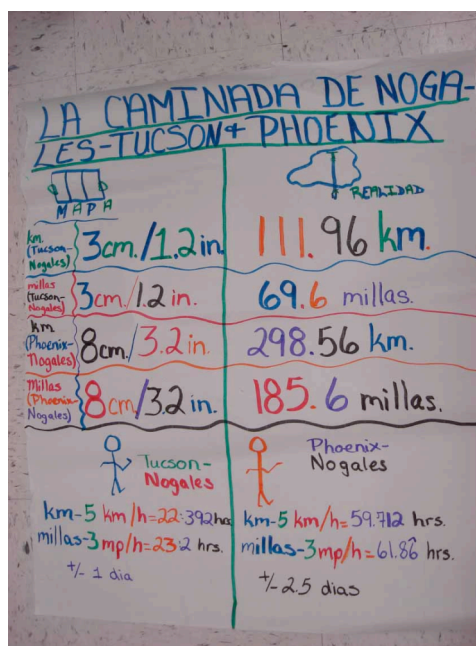 LA CAMINADA DE NOGA-
LES-TUCSON+ PHOENIX
MAPA
REALIDAD
km.
(Tucson-
Nogales)
3cm./1.2in.
111.96 km.
millas
(Tucson-
Nogales)
3cm./1.2 in.
69.6 millas.
km
(Phoenix-
Nogales)
8cm./3.2 in.
298.56 km.
Millas
(Phoenix-
Nogales)
8cm/3.2 in.
185.6 millas.
Tucson-
Nogales
km-5 km/h=22.392 hrs.
millas-3mp/h=23.2 hrs.
+/- 1 dia
Phoenix-
Nogales
km-5 km/h=59.712 hrs.
millas-3mp/h=61.86 hrs.
+/- 2.5 dias